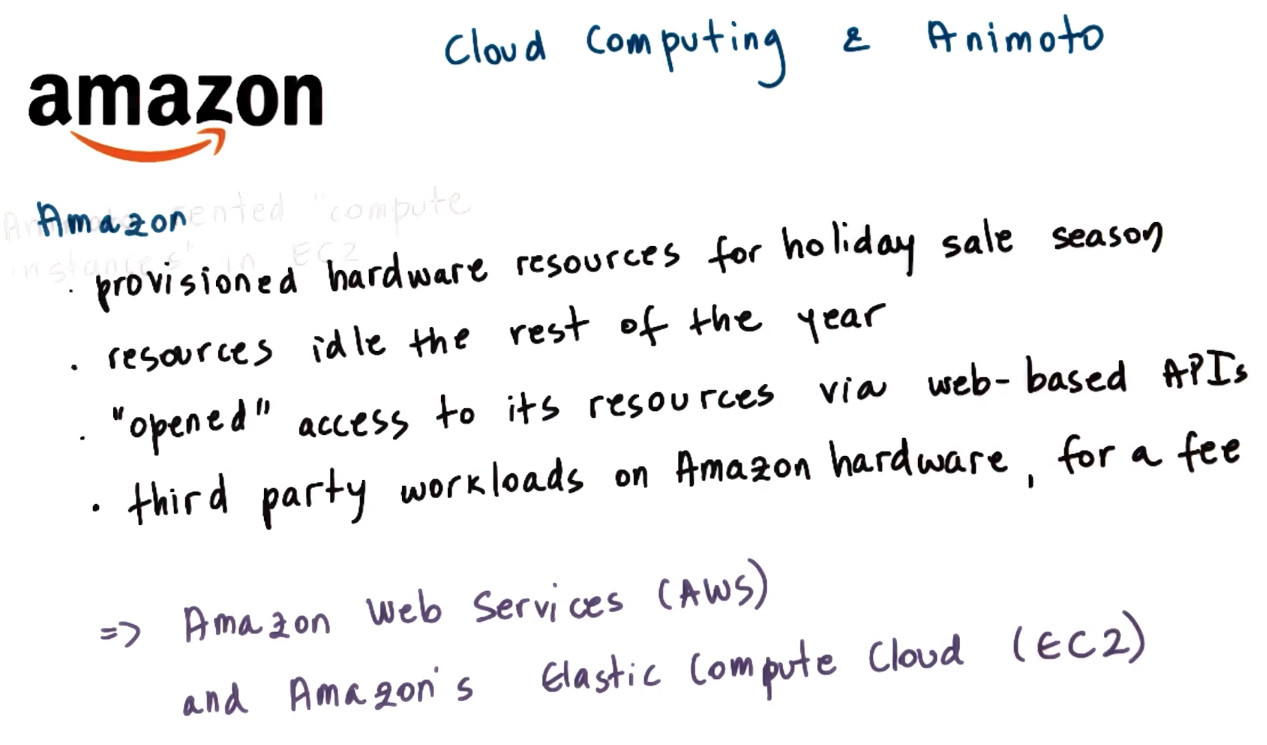 Cloud Computing & Animoto
amazon
Animoto rented "compute
instances" in EC2
Amazon
. provisioned hardware resources for holiday sale season
. resources idle the rest of the year
. "opened" access to its resources via web-based APIs
. third party workloads on Amazon hardware, for a fee
=> Amazon Web Services (AWS)
and Amazon's Elastic Compute Cloud (EC2)